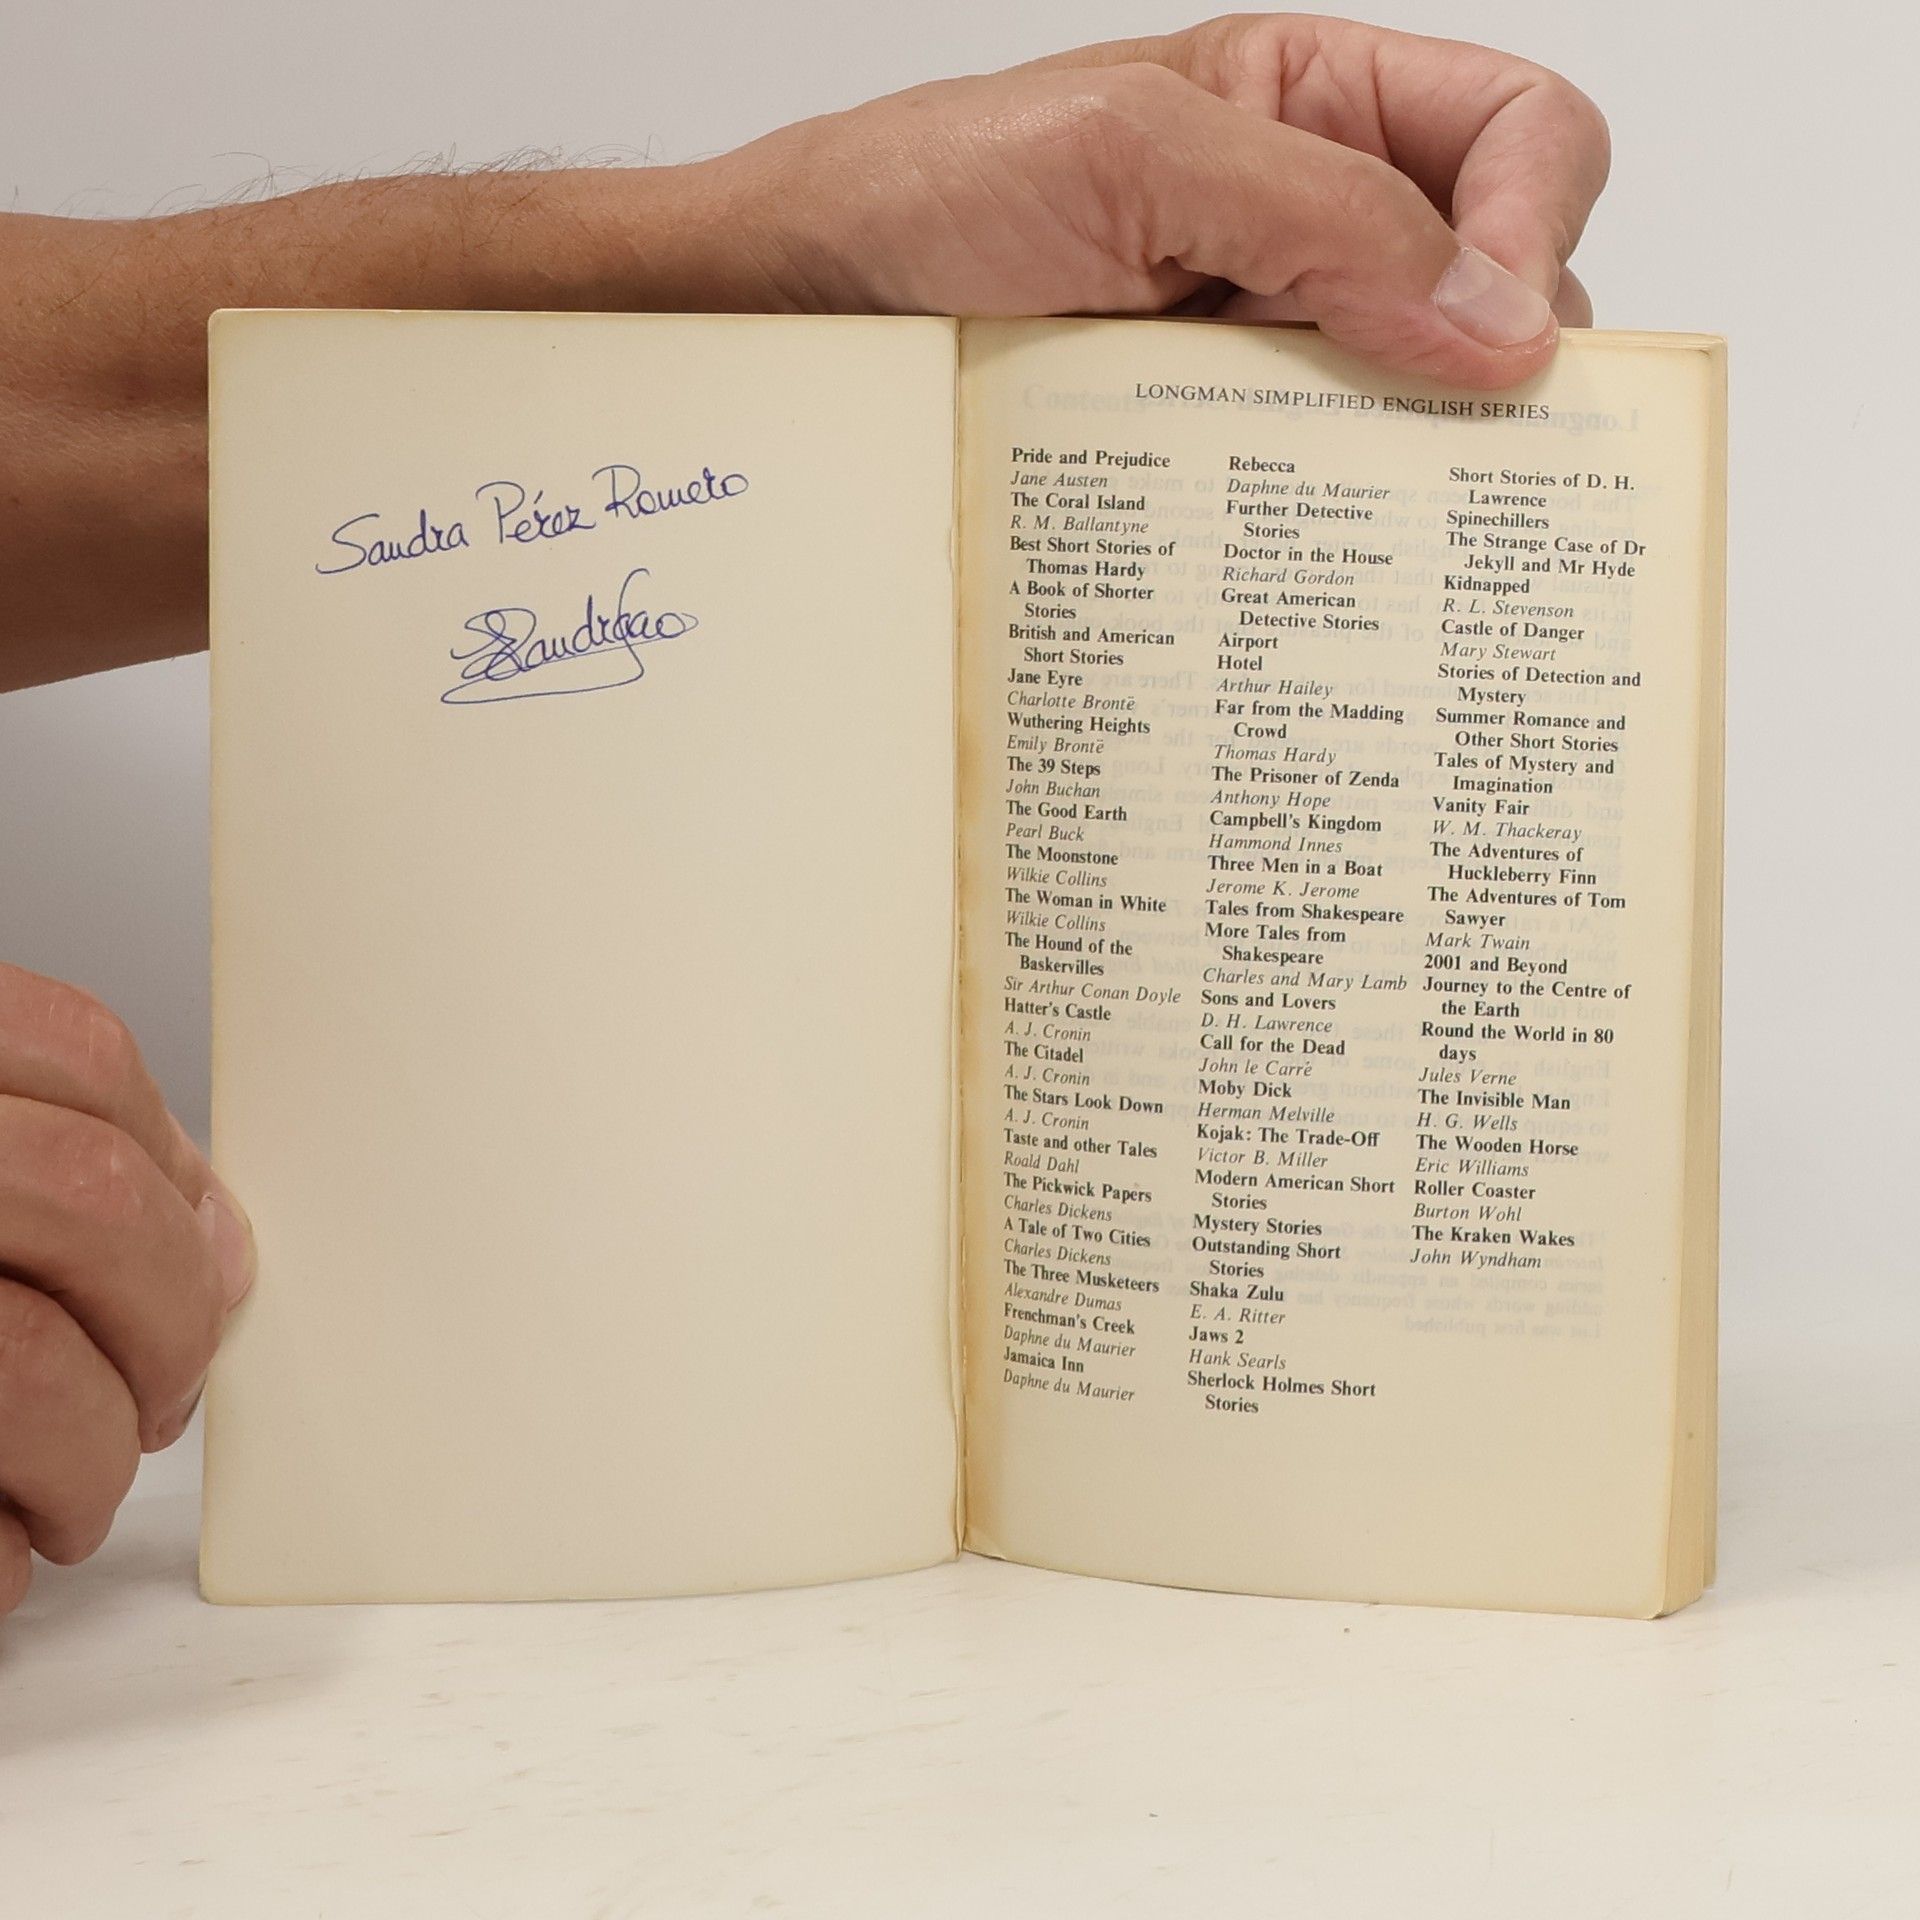 Sandra Pérez Romero
LONGMAN SIMPLIFIED ENGLISH SERIES
Pride and Prejudice
Jane Austen
The Coral Island
R. M. Ballantyne
Best Short Stories of
Thomas Hardy
A Book of Shorter
Stories
British and American
Short Stories
Jane Eyre
Charlotte Brontë
Wuthering Heights
Emily Brontë
The 39 Steps
John Buchan
The Good Earth
Pearl Buck
The Moonstone
Wilkie Collins
The Woman in White
Wilkie Collins
The Hound of the
Baskervilles
Sir Arthur Conan Doyle
Hatter's Castle
A. J. Cronin
The Citadel
A. J. Cronin
The Stars Look Down
A. J. Cronin
Taste and other Tales
Roald Dahl
The Pickwick Papers
Charles Dickens
A Tale of Two Cities
Charles Dickens
The Three Musketeers
Alexandre Dumas
Frenchman's Creek
Daphne du Maurier
Jamaica Inn
Daphne du Maurier
Rebecca
Daphne du Maurier
Further Detective
Stories
Doctor in the House
Richard Gordon
Great American
Detective Stories
Airport
Hotel
Arthur Hailey
Far from the Madding
Crowd
Thomas Hardy
The Prisoner of Zenda
Anthony Hope
Campbell's Kingdom
Hammond Innes
Three Men in a Boat
Jerome K. Jerome
Tales from Shakespeare
More Tales from
Shakespeare
Charles and Mary Lamb
Sons and Lovers
D. H. Lawrence
Call for the Dead
John le Carré
Moby Dick
Herman Melville
Kojak: The Trade-Off
Victor B. Miller
Modern American Short
Stories
Mystery Stories
Outstanding Short
Stories
Shaka Zulu
E. A. Ritter
Jaws 2
Hank Searls
Sherlock Holmes Short
Stories
Short Stories of D. H.
Lawrence
Spinechillers
The Strange Case of Dr
Jekyll and Mr Hyde
Kidnapped
R. L. Stevenson
Castle of Danger
Mary Stewart
Stories of Detection and
Mystery
Summer Romance and
Other Short Stories
Tales of Mystery and
Imagination
Vanity Fair
W. M. Thackeray
The Adventures of
Huckleberry Finn
The Adventures of Tom
Sawyer
Mark Twain
2001 and Beyond
Journey to the Centre of
the Earth
Round the World in 80
days
Jules Verne
The Invisible Man
H. G. Wells
The Wooden Horse
Eric Williams
Roller Coaster
Burton Wohl
The Kraken Wakes
John Wyndham